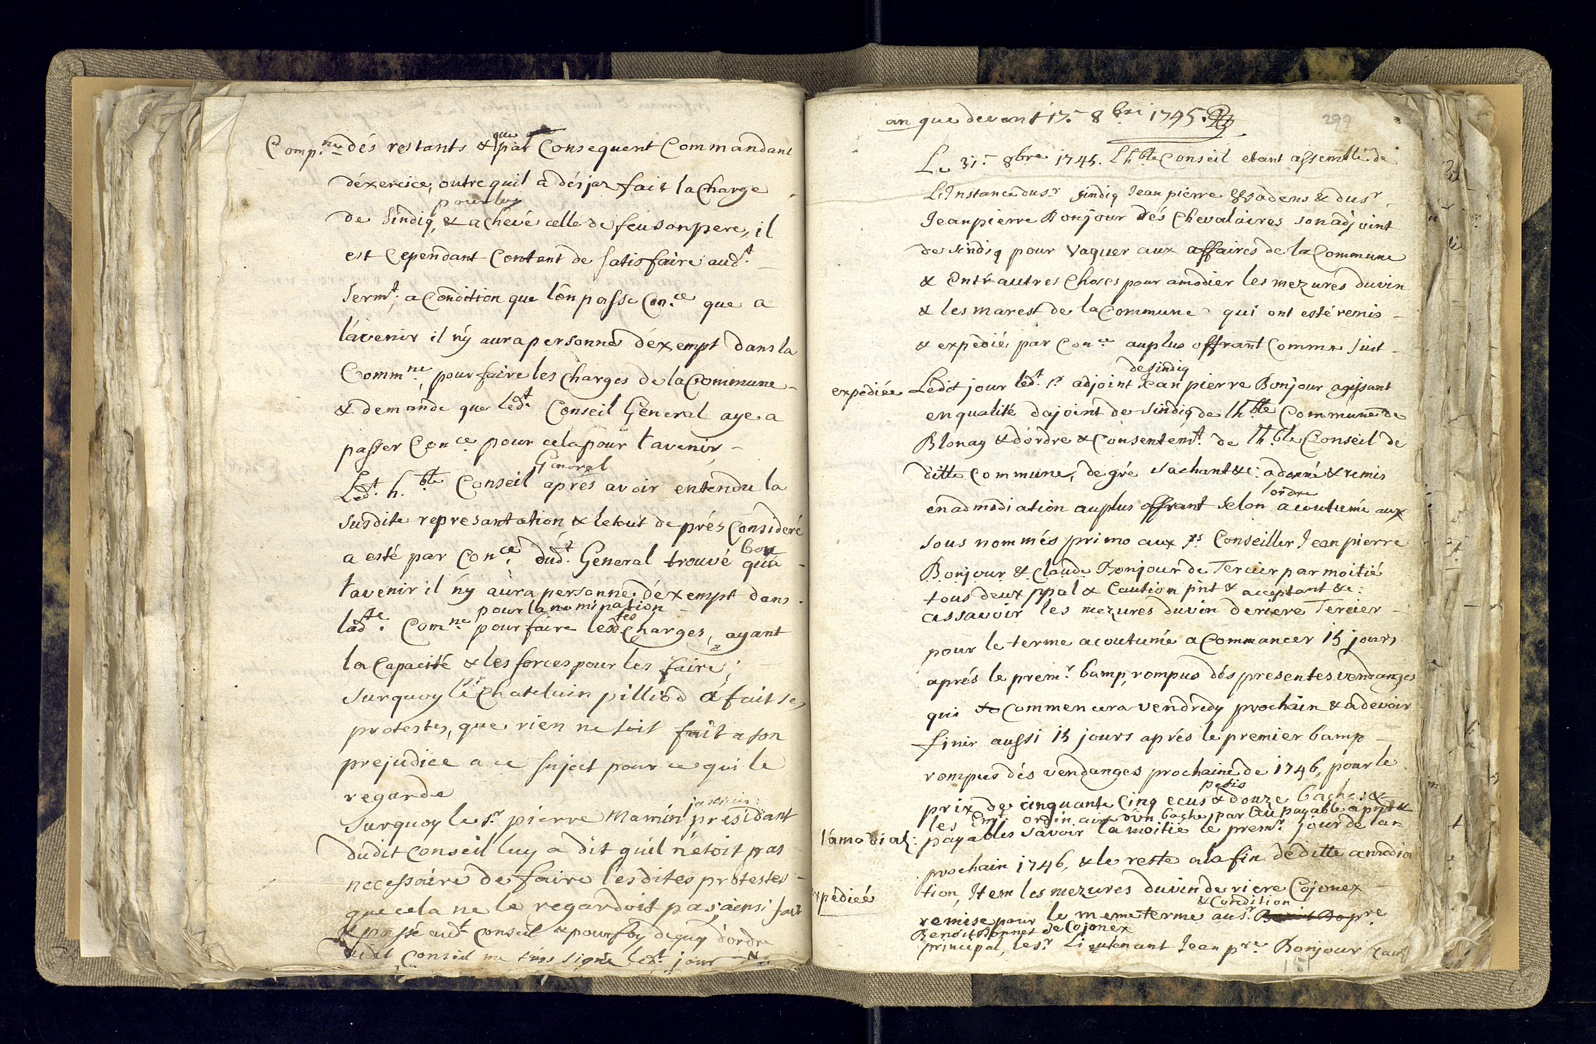 Comp.ne dés restants & que par Consequent Commandant
déxercice, outre quil a désjaz fait la Charge
de Sindiq, pour luy & achevé celle de feu son pere, il
est Cependant Contant de satisfaire aud.t
Serm.t, a Condition que lón passe Con.ce que a
lávenir il n'y aura personne déxempt dans la
Comm.ne, pour faire les Charges de la Commune
& demande que led.t Conseil General aye a
passer Con.ce pour cela pour l'avenir,
Led.t h.ble Conseil General aprés avoir entendu la
susdite represantation & le tout de prés Consideré
a esté par Con.ce dud.t General trouvé bon quá
l'avenir il n'y aura personne déxempt dans
lad.te Com.ne pour la nomination pour faire lesd.tes Charges, ayant
la Capacité & les forces pour les faire;
Surquoy le Chatelain pilliod a fait ses
protestes, que rien ne soit fait a son
prejudice a ce sujet pour ce qui le
regarde
Surquoy le S.r pierre Mamin présidant
dudit Conseil luy a dit quíl n'étoit pas
necessaire de faire lesdites protestes
que cela ne le regardoit pas ainsi fait
& passé aud.t Conseil & pour foy dequoy d'ordre
dudit Conseil me suis signé led.t jour
an que devant 17.e 8.bre 1745.
299
Le 31.e 8bre 1745. L'h.ble Conseil etant assemblé de
L'Instance du S.r Sindiq Jean pierre & du S.r
Jean pierre Bonjour dés Chevalaires son adjoint
de Sindiq pour Vaquer aux affaires de la Commune
& Entr'autres Choses pour amodier les mezures du vin
& les marest de la Commune qui ont esté remis
& expedié par Con.ce au plus offrant Comme suit
expediée Ledit jour led.t S.r adjoint de sindiq Jean pierre Bonjour agissant
en qualité dajoint de Sindiq de l'h.ble Commune de
Blonay & d'ordre & Consentem.t de l'h.ble Conseil de
ditte Commune, de gré sachant &c: a donné & remis
en admodiation au plus offrant selon l'ordre acoutumé aux
sous nommés primo aux S.rs Conseiller Jean pierre
Bonjour & Claude Bonjour de Tercier par moitié
tous deux ppal & Caution pnt & acceptant &c.
assavoir les mezures du vin deriere Tercier
pour le terme acoutumé a Commancer 15 jours
aprés le prem.r bamp, rompus dés presentes vendanges
qui Commencera vendredy prochain & a devoir
finir aussi 15 jours aprés le premier bamp
rompus dés vendanges prochaine de 1746, pour le
prix de cinquante Cinq ecus petis & douze baches &
les Em.t ordin. aux d'un bache par Ecu payable a pnt &
l'amodiat: payables savoir la moitié le prem.r jour de l'an
prochain 1746, & le reste a la fin de ditte amodia
expediée tion, Item les mezures du vin deriere Cojonex
remise pour le meme terme & Condition. au S.r
Benoit Bonnet de Cojonex
principal, le S.r Lieutenant Jean p.re Bonjour Cau